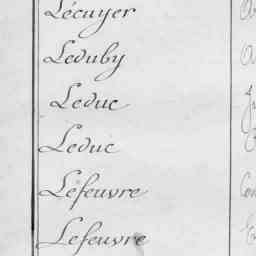 Lécuyer
Leduby
Leduc
Leduc
Lefeuvre
Lefeuvre